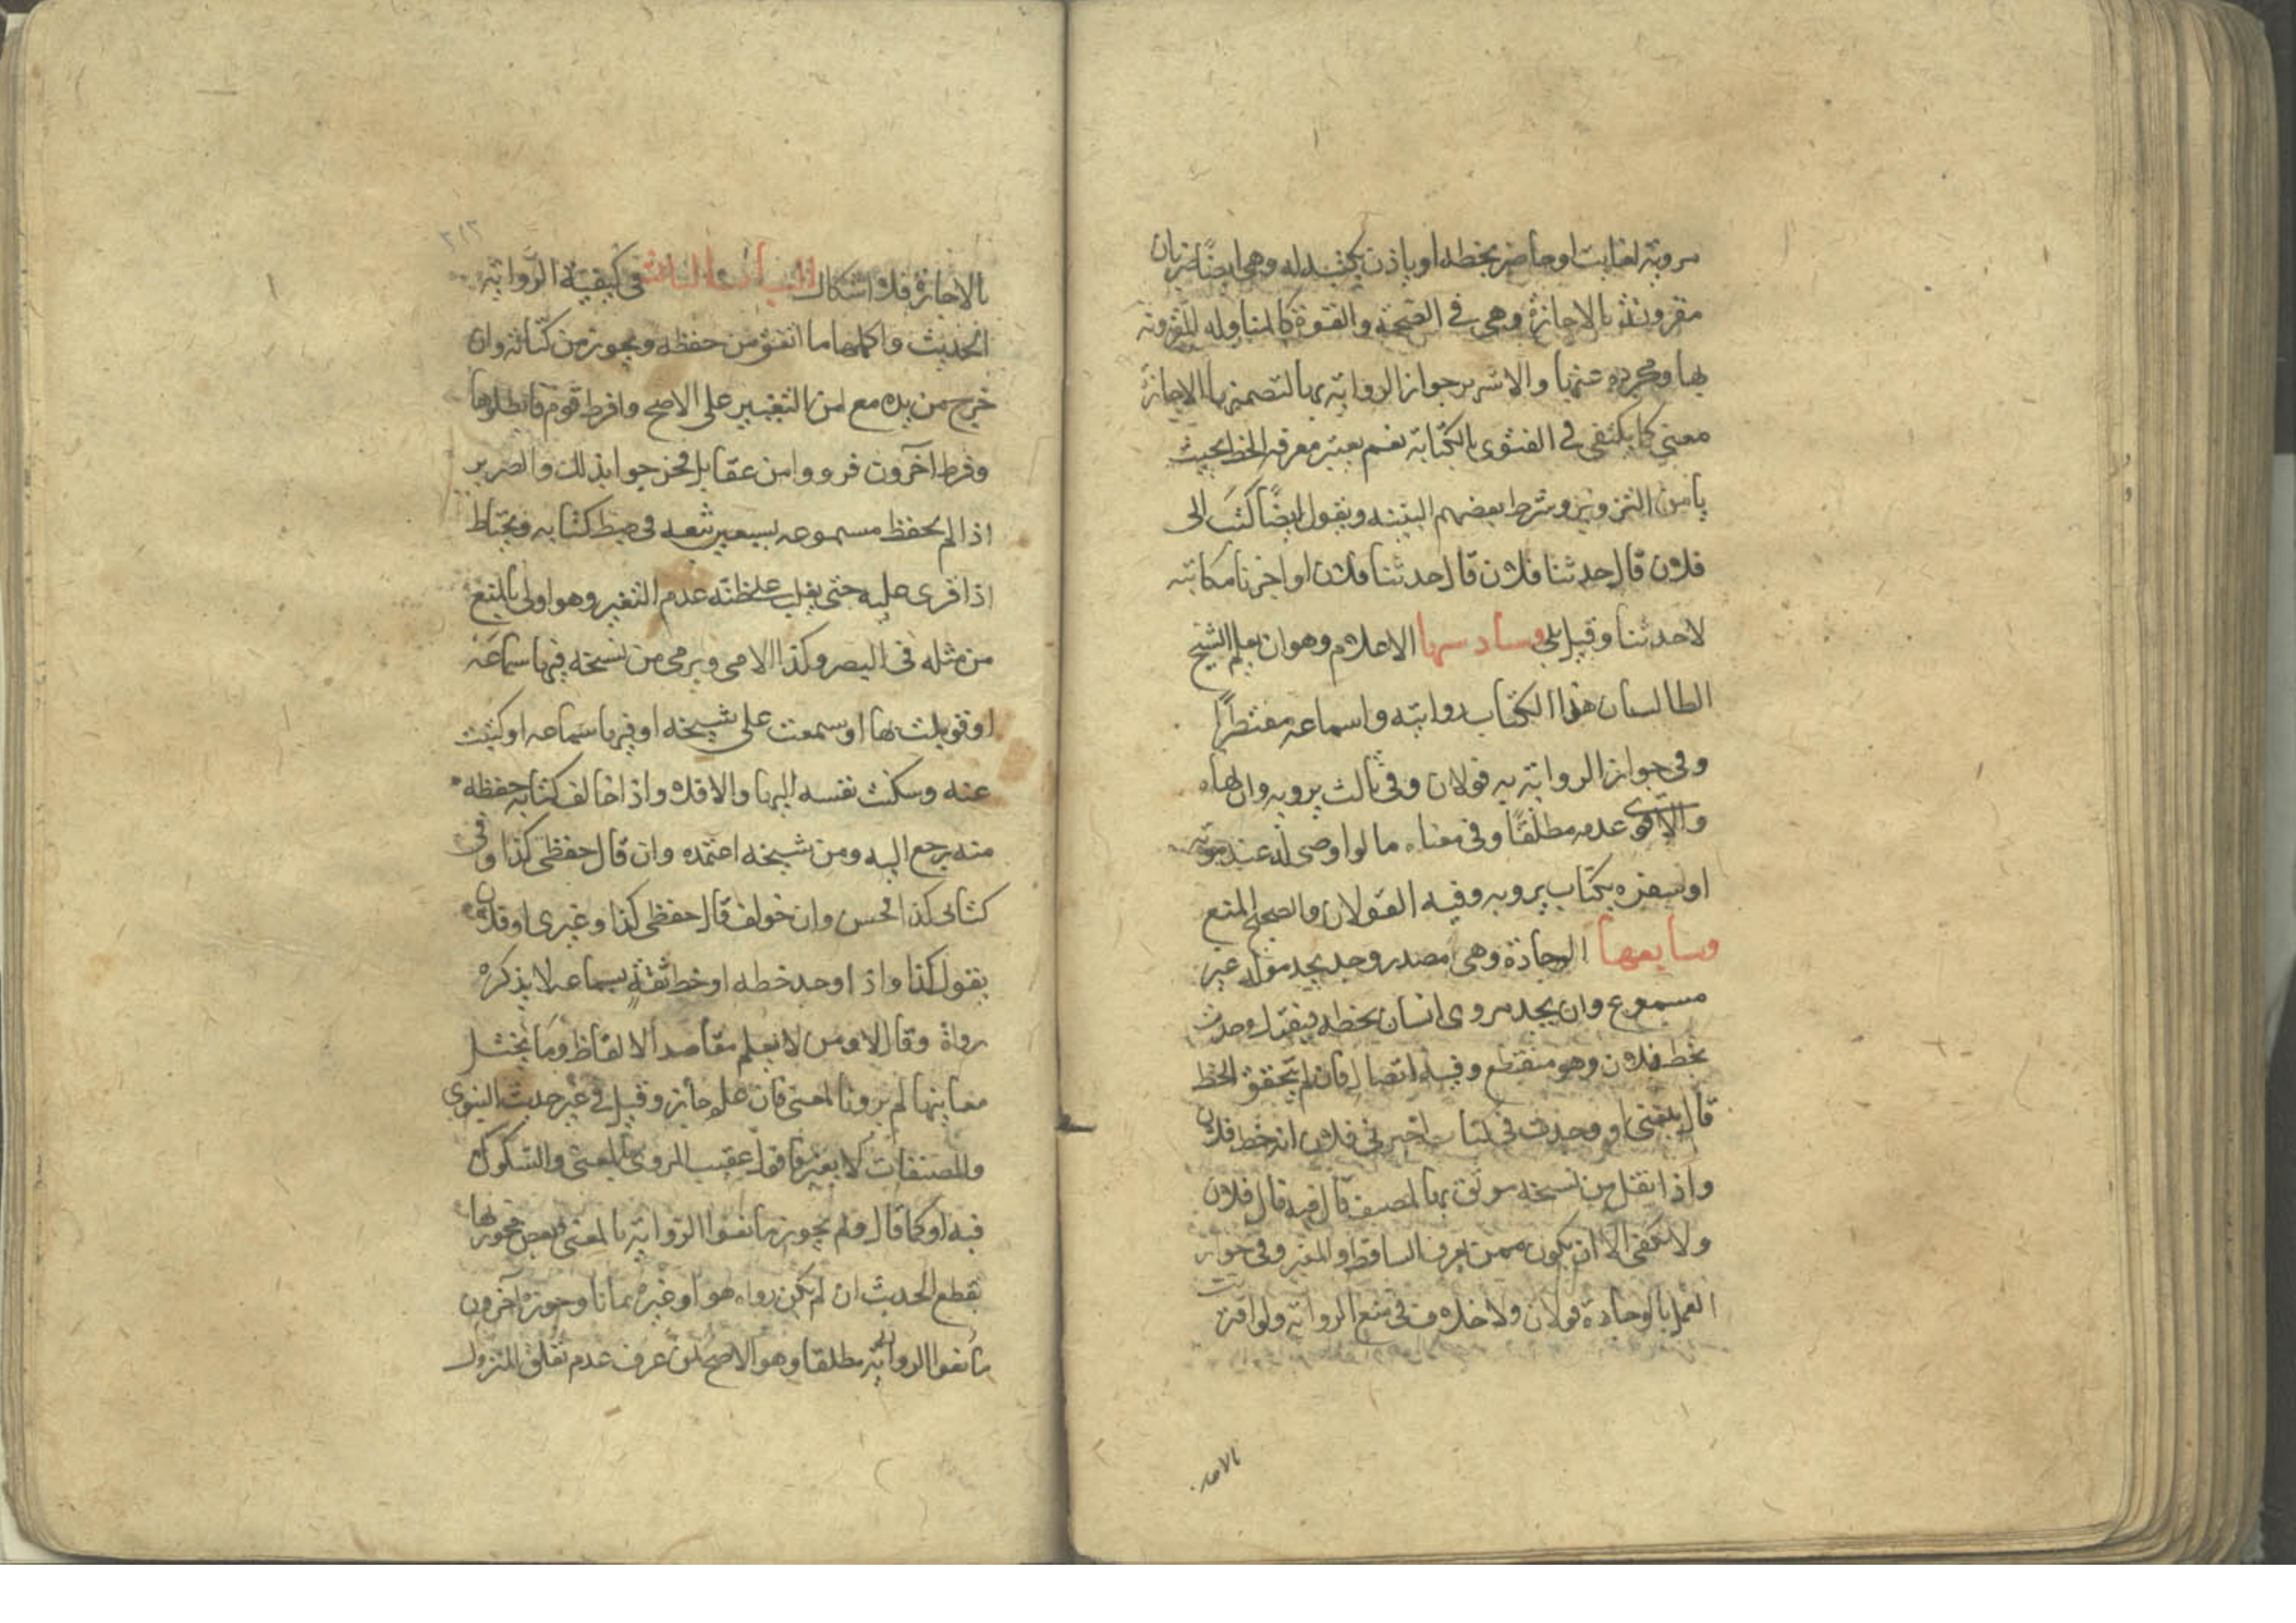 مرويه لغايب او حاضر بخطه او ياذن بكتبه له وهي ايضا ضربان
مقرونة بالاجازة وهي في الصحة والقوة كالمناوله المقرونه
بها ومجرده عنها والاشهر جواز الرواية بها لتضمنها الاجازة
معنى كما يكتفى في الفتوى بالكتابة نعم يعتبر معرفة الخط بحيث
يامن التزوير وشرط بعضهم البينه ويقول ايضا كتب الى
فلان قال حدثنا فلان قال حدثنا فلان او اخبرنا مكاتبة
لا حدثنا وقيل بلى وسادسها الاعلام وهو ان يعلم الشيخ
الطالب ان هذا الكتاب روايته واسماعه مقتصرا
وفي جواز الرواية به قولان وفي ثالث يرويه وان نهاه
والاقوى عدمه مطلقا وفي معناه ما لو اوصى له عند موته
او سفره بكتاب يرويه وفيه القولان والصحيح المنع
وسابعها الوجادة وهي مصدر وجد يجد مولد غير
مسموع وان يجد مروى انسان بخطه فيقول وجدت
بخط فلان وهو منقطع وفيه اتصال فان لم يتحقق الخط
قال بلغني او وجدت في كتاب اخبرني فلان انه خط فلان
واذا نقل من نسخه موثوق بها لمصنف قال فيه قال فلان
ولا يكفى الا ان يكون ممن يعرف الساقط او المغير وفي جواز
العمل بالوجادة قولان ولا خلاف في منع الرواية ولو اقترنت
بالاجا
بالاجازة فلا اشكال الباب الثالث في كيفية الرواية
الحديث واكملها ما اتفق من حفظه ويجوز من كتابه وان
خرج من يده مع امن التغيير على الاصح وافرط قوم فابطلوها
وفرط آخرون فرووا من غير مقابل فجرحوا بذلك والضرير
اذا لم يحفظ مسموعه يستعين بثقه في ضبط كتابه ويحتاط
اذا قرى عليه حتى يغلب على ظنه عدم التغير وهو اولى بالمنع
من مثله في البصر وكذا الامى ويروى من نسخه فيها سماعه
او قوبلت بها او سمعت على شيخه او فيها سماعه او كتبت
عنه وسكنت نفسه اليها والا فلا واذا خالف كتابه حفظه
منه يرجع اليه ومن شيخه اعتمده وان قال حفظى كذا وفي
كتابى كذا فحسن وان خولف قال حفظى كذا وغيرى او فلان
يقول كذا واذا وجد خطه او خط ثقة بسماعه لا يذكره
رواه وقال لا ومن لا يعلم مقاصد الالفاظ وما يختل
معانيها لم يرو بالمعنى فان علم جاز وقيل في غير حديث النبوى
والمصنفات لا يغير وقول عقيب المروى بالمعنى والشكوك
فيه او كما قال ولم يجوز مانعوا الرواية بالمعنى وبعض مجوزيها
تقطع الحديث ان لم يكن رواه هو او غيره تماما وجوزه آخرون
مانعوا الرواية مطلقا وهو الاصح لمن عرف عدم تعلق المتروك